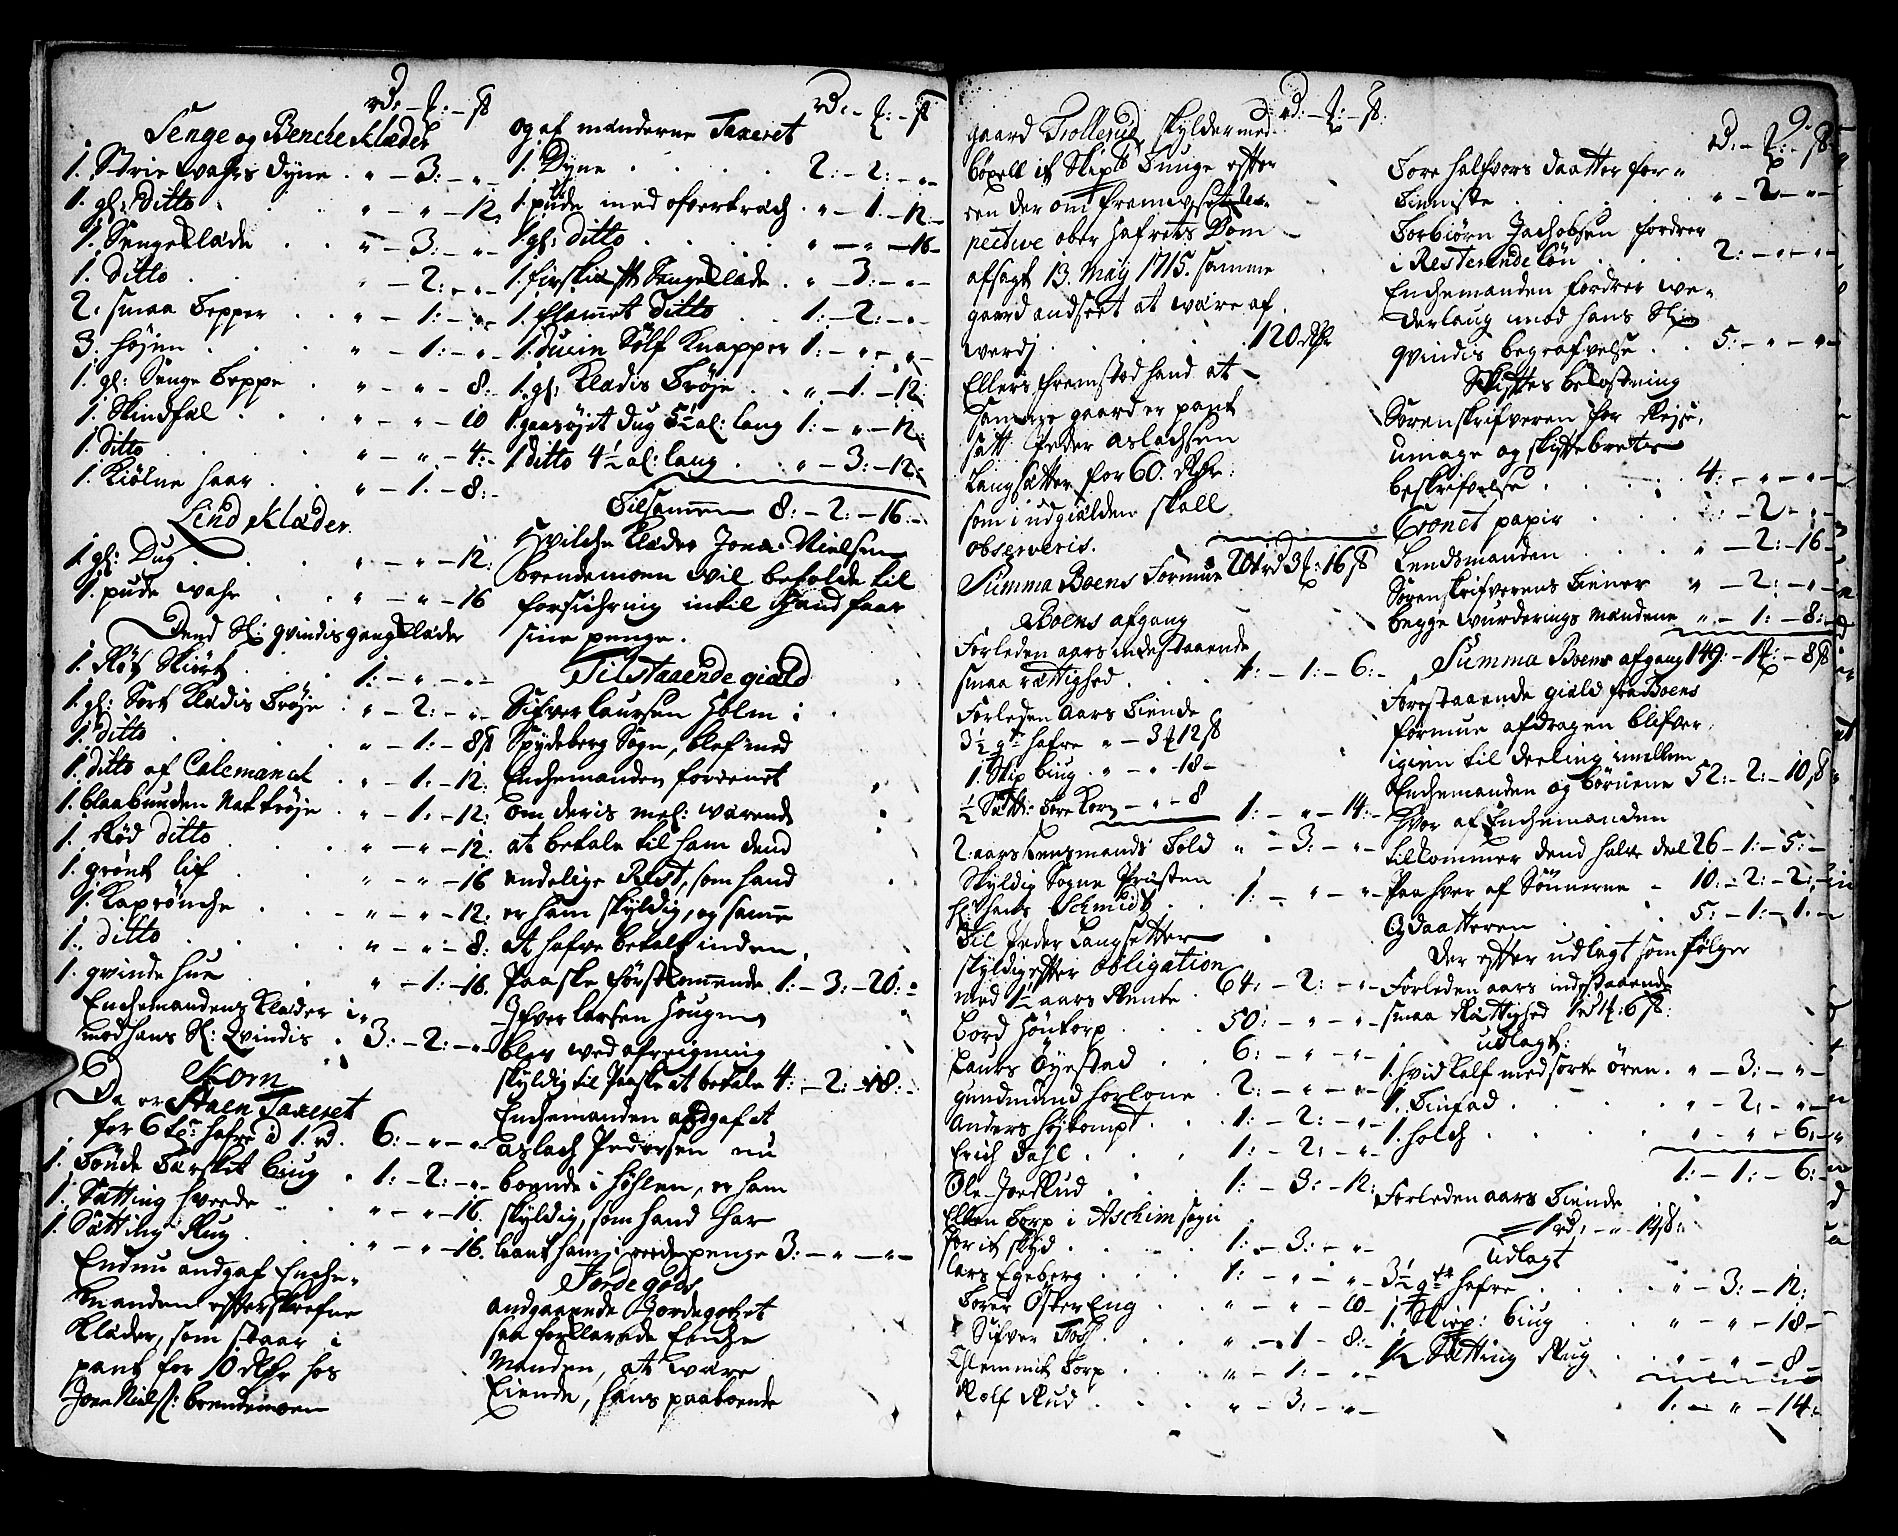 rd: - ƶ: - ß
Senge og Bencke Klæder
1. Strie wahrs dyne . " - 3: - "-
1. gl: ditto . . " - " - 12.
1. Sengeklæde . . " - 3: - "
1. ditto . . " - 2: - "-
2: smaa Tepper . . " - 1: - "-
3. Høyen . . " - 1: - "-
1. gl: Senge Teppe . " - " - 8:
1. Skindfæl . . " - " - 10
1. ditto . . " - " - 4: -
1. Kiølne haar . . " - 1. - 8: -
Lind Klæder
1. gl: Dug . . " - " - 12:
1. pude wahr . . " - " - 16
Dend Sl: qvindis gangklæder
1. Røt Skiørt . . 1: - " - "-
1. gl: Sort Klædis Trøje . " - 2: - "-
1. ditto . . " - 1: - 8ß
1. ditto af Calemanck . " - 1. - 12:
1. blaabunden Nattrøje . " - 1. - 12:
1. Rød ditto . . " - " - 12:
1. grønt lif . . " - " - 16
1. Kaprønche . . " - " - 12:
1. ditto . . " - " - 8:
1. qvinde hue . . " - 1: - 16.
Enchemandens Klæder i
med hans Sl: Qvindis . 3: - 2: - "-
Korn
Da er Staen Taxeret
for 6 tr: hafre a 1. rd. 6: - " - "-
1. Tønde Tærsket biug . 1: - 2: - "-
1. Sætting hvede . . " - " - 16.
1. Sætting Rug . . " - " - 16.
Endnu andgaf Enche-
manden efterskrefne
Klæder, som staar i
pant for 10 Rdr hos
Joen Niels: brendemoen
rd: - ƶ: - ß
og af mænderne Taxeret
1. Dyne . . 2: - 2: - "-
1. pude med ofvertræch . " - 1. - 12 -
1. gl: ditto . . " - " - 16 -
1. firskiaft Sengeklæde . " - 3: - "-
1. flamet ditto . . 1: - 2: - "-
1. dusin Sølf Knapper 1: - " - "-
1. gl: Klædis Trøje . . " - 1. - 12:
1. gaasøjet dug 5½ al: lang 1: - " - 12:
1. ditto 4½ al: lang . " - 3: - 12:
Tilsamen 8: - 2: - 16: -
Hvilche Klæder Joen Nielsen
brendemoen vil beholde til
forsichring intil hand faar
sine penge.
Tilstaaende giæld
Sifver laursen Holm i
Spydeberg Sogn, blef med
Enchemanden foreenet
om deris mel: wærende
at betale til ham dend
endelige Rest, som hand
er ham skyldig, og samme
at hafve betalt inden
Paaske førstkomende 1: - 3: - 20: "
Ifver larsen Hougen
blev wed afreigning
skyldig til Paaske at betale 4: - 2: - 18: -
Enchemanden andgaf at
Aslach Pedersen nu
boende i Høhlen, er ham
skyldig, som hand har
laant ham i rede penge 3: - " - "-
Jorde gods
andgaaende Jordegodset
saa forklarede Enche
Manden, at wære
Eiende, hans paaboende
rd: - ƶ: - ß:
gaard Trollerud skylder med
bøxell it Skip tunge efter
een der om fremwiset re-
pective ober hafrets Dom
afsagt 13. Maij 1715. samme
gaard andseet at wære af
werdj . . 120 Rdr
Ellers fremstod hand at
Samme gaard er pant
satt Peder Aslachsen
Langsætter for 60. Rdr:
som i udgiælden skall
observeris.
Summa Boens Formue 201 rd 3ƶ: 16 ß
Boens afgang
Forleden aars indestaaende
smaa rættighed . . 1: - 1: - 6: -
Forleden Aars Tiende
3½ qtr hafre " - 3ƶ 12 ß
1. Skip biug . " - " 18 -
½ Sætt: Tore Korn - " - 8 1: - " - 14: -
2: aars Lensmands Told " - 3: - "-
Skyldig Sogne Præsten
Hr: Hans Schmidt . . 1: - " - "-
Til Peder Langsetter
skyldig efter Obligation
med 1½ aars Rente . 64: - 2: - "-
Tord Høntorp . . 50: - " - "-
Laurs Øyestad . . 6: - " - "-
Gundmund Horlone . 2: - " - "-
Anders Højkompt . . 1: - 2: - "-
Erich Dahl . . 1: - 2: - "-
Ole Joedkud . . 1: - 3: - 12:
Ellen Torp i Aschim sogn
for it skind . . 1: - 3: - "-
Lars Egeberg . . 1: - " - "-
Torer Øster Eng . . " - " - 10 -
Sifver Foss . . " - 1 - 8: -
Clemmit Torp . . " - 1: - "-
Rolf Rud . . " - 3: - "-
9.
rd: - ƶ: - ß:
Tore Halfvors daatter for
tienniste . . " - 2 - "-
Torbiørn Jachobsen fordrer
i Resterende løn . . 2: - " - "-
Enchemanden fordrer we-
derlaug mod hans Sl:
qvindis begrafvelse . 5: - " - "-
Skiftes bekostning
Sorenskrifveren for Rejse,
umage og skiftebrets
beskrifvelse . . 4: - " - "-
Cronet papir . . " - 2 - "-
Lendsmanden . . " - 2: - 16 -
Sorenskrifverens tiener " - 2: - "-
begge wurderings mændene " - 1: - 8: -
Summa Boens afgang 149: - 1ƶ: - 8 ß
Forestaaende giæld fra Boens
formue afdragen blifver
igien til deeling imellem
Enchemanden og børnene 52: - 2: - 10 ß
Hvor af Enchemanden
tilkommer dend halve deel 26 - 1: - 5: -
Paa hver af Sønnerne - 10: - 2: - 2: -
Og daatteren . . 5: - 1: - 1. -
Der efter udlagt som følger
Forleden aars indestaaende
smaa Rættighed 1 rd 1ƶ: 6 ß:
udlagt:
1. hvid kalf med sorte ören . " - 3: - "-
1. Tinfad . . " - 2: - "-
1. holck . . " - " - 6: -
1: - 1: - 6: -
Forleden aars Tiende
1 rd: - " 14 ß:
Udlagt
3½ qtr hafre . . " - 3: - 12:
1. Skiep: biug . . " - " - 18 -
½ Sætting Rug . . " - " - 8 -
1: - " - 14: -